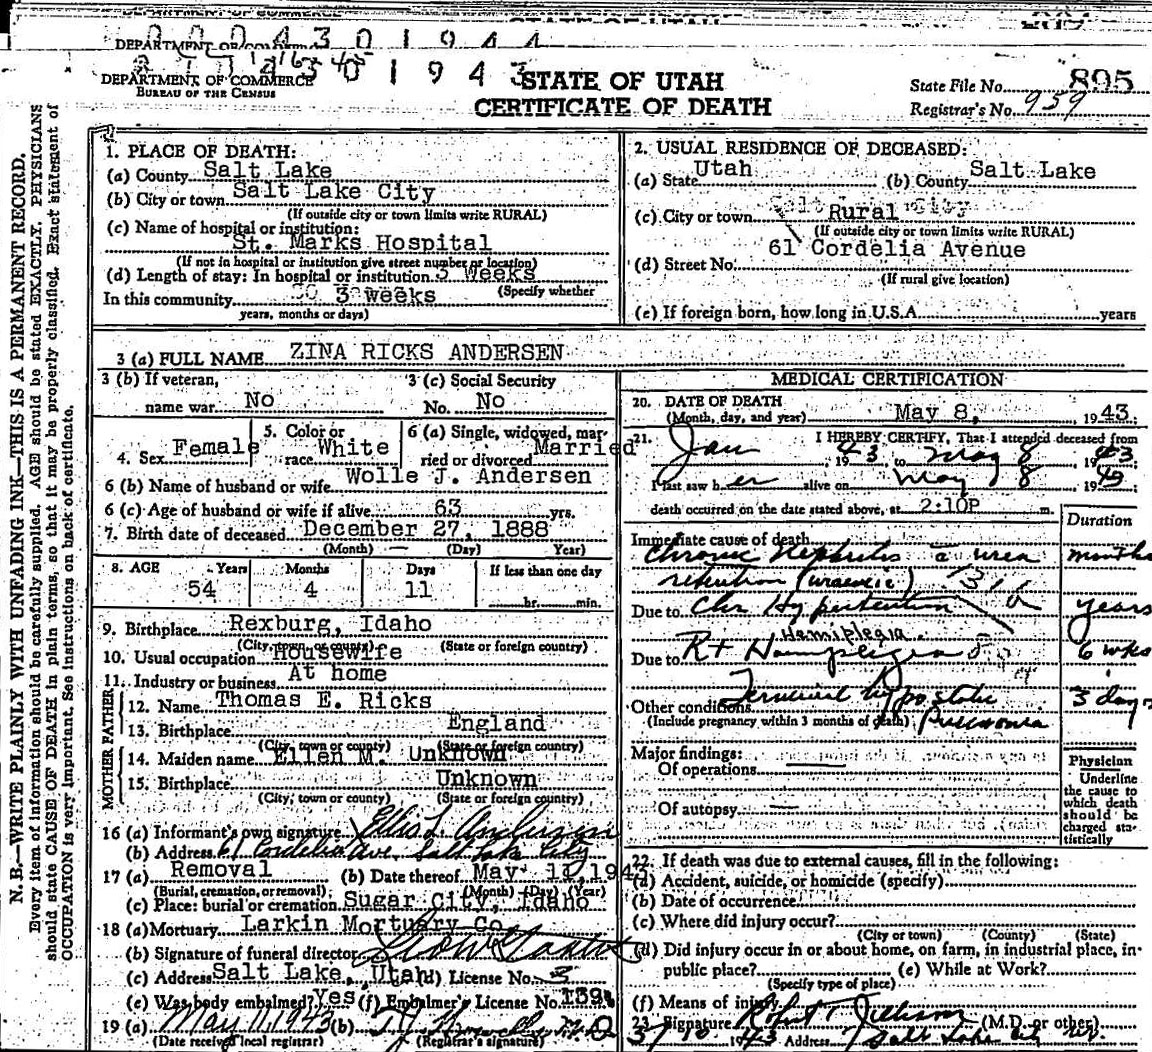 DEPARTMENT OF COMMERCE
STATE OF UTAH
0 0 0 4 3 0 1 9 4 4
DEPARTMENT OF COMMERCE
4 3 0 1 9 4 3
DEPARTMENT OF COMMERCE
BUREAU OF THE CENSUS
STATE OF UTAH
CERTIFICATE OF DEATH
State File No. 895
Registrar's No. 959
N. B.—WRITE PLAINLY WITH UNFADING INK—THIS IS A PERMANENT RECORD.
Every item of information should be carefully supplied. AGE should be stated EXACTLY. PHYSICIANS
should state CAUSE OF DEATH in plain terms, so that it may be properly classified. Exact statement of
OCCUPATION is very important. See instructions on back of certificate.
1. PLACE OF DEATH:
(a) County Salt Lake
(b) City or town Salt Lake City
(If outside city or town limits write RURAL)
(c) Name of hospital or institution:
St. Marks Hospital
(If not in hospital or institution give street number or location)
(d) Length of stay: In hospital or institution 3 weeks
(Specify whether
In this community 3 weeks
years, months or days)
2. USUAL RESIDENCE OF DECEASED:
(a) State Utah (b) County Salt Lake
(c) City or town Rural
(If outside city or town limits write RURAL)
61 Cordelia Avenue
(d) Street No.
(If rural give location)
(e) If foreign born, how long in U.S.A. years
3 (a) FULL NAME ZINA RICKS ANDERSEN
3 (b) If veteran,
name war No
3 (c) Social Security
No. No
4. Sex Female
5. Color or
race White
6 (a) Single, widowed, mar-
ried or divorced Married
6 (b) Name of husband or wife Wolle J. Andersen
6 (c) Age of husband or wife if alive 63 yrs.
7. Birth date of deceased December 27, 1888
(Month) (Day) Year)
8. AGE Years Months Days If less than one day
54 4 11 hr. min.
9. Birthplace Rexburg, Idaho
(City, town or county) (State or foreign country)
10. Usual occupation Housewife
11. Industry or business At home
FATHER
12. Name Thomas E. Ricks
13. Birthplace England
(City, town or county) (State or foreign country)
MOTHER
14. Maiden name Ellen M. Unknown
15. Birthplace Unknown
(City, town or county) (State or foreign country)
16 (a) Informant's own signature Ellis L. Andersen
(b) Address 61 Cordelia Ave. Salt Lake City
17 (a) Removal (b) Date thereof May 11, 1943
(Burial, cremation, or removal) (Month) (Day) (Year)
(c) Place: burial or cremation Sugar City, Idaho
18 (a) Mortuary Larkin Mortuary Co.
(b) Signature of funeral director
(c) Address Salt Lake, Utah (d) License No. 3
(e) Was body embalmed? Yes (f) Embalmer's License No.
19 (a) May 11, 1943 (b) M.D.
(Date received local registrar) (Registrar's signature)
MEDICAL CERTIFICATION
20. DATE OF DEATH
(Month, day, and year) May 8, 1943
21. I HEREBY CERTIFY, That I attended deceased from
Jan 1943 to May 8 1943
I last saw her alive on May 8 1943
death occurred on the date stated above, at 2:10P m.
Duration
Immediate cause of death
Chronic Nephritis a urea months
retention (uraemic) 131a
Due to Chr Hypertention years
Hemiplegia
Due to Rt Hemiplegia 6 wks
Terminal hypostatic 3 days
Other conditions
(Include pregnancy within 3 months of death) Pneumonia
Major findings:
Of operations
Of autopsy
Physician
Underline
the cause to
which death
should be
charged sta-
tistically
22. If death was due to external causes, fill in the following:
(a) Accident, suicide, or homicide (specify)
(b) Date of occurrence
(c) Where did injury occur?
(City or town) (County) (State)
(d) Did injury occur in or about home, on farm, in industrial place, in
public place? (e) While at Work?
(Specify type of place)
(f) Means of injury
23. Signature Robert T. (M.D. or other)
5/10 1943 Address Salt Lake City Ut.